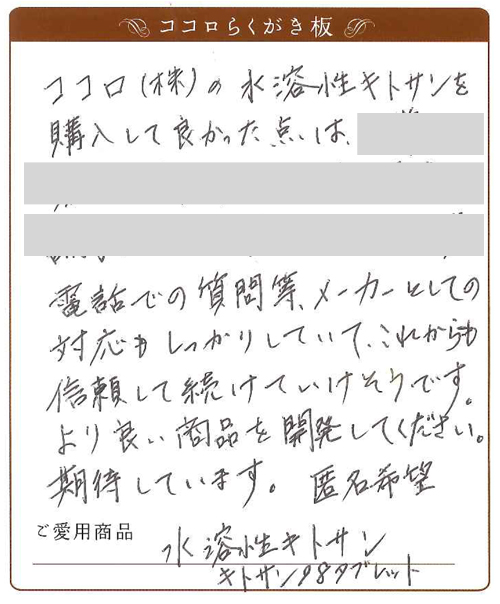 ココロらくがき板
ココロ(株)の水溶性キトサンを
購入して良かった点は、
電話での質問等、メーカーとしての
対応もしっかりしていて、これからも
信頼して続けていけそうです。
より良い商品を開発してください。
期待しています。 匿名希望
ご愛用商品
水溶性キトサン
キトサン98タブレット